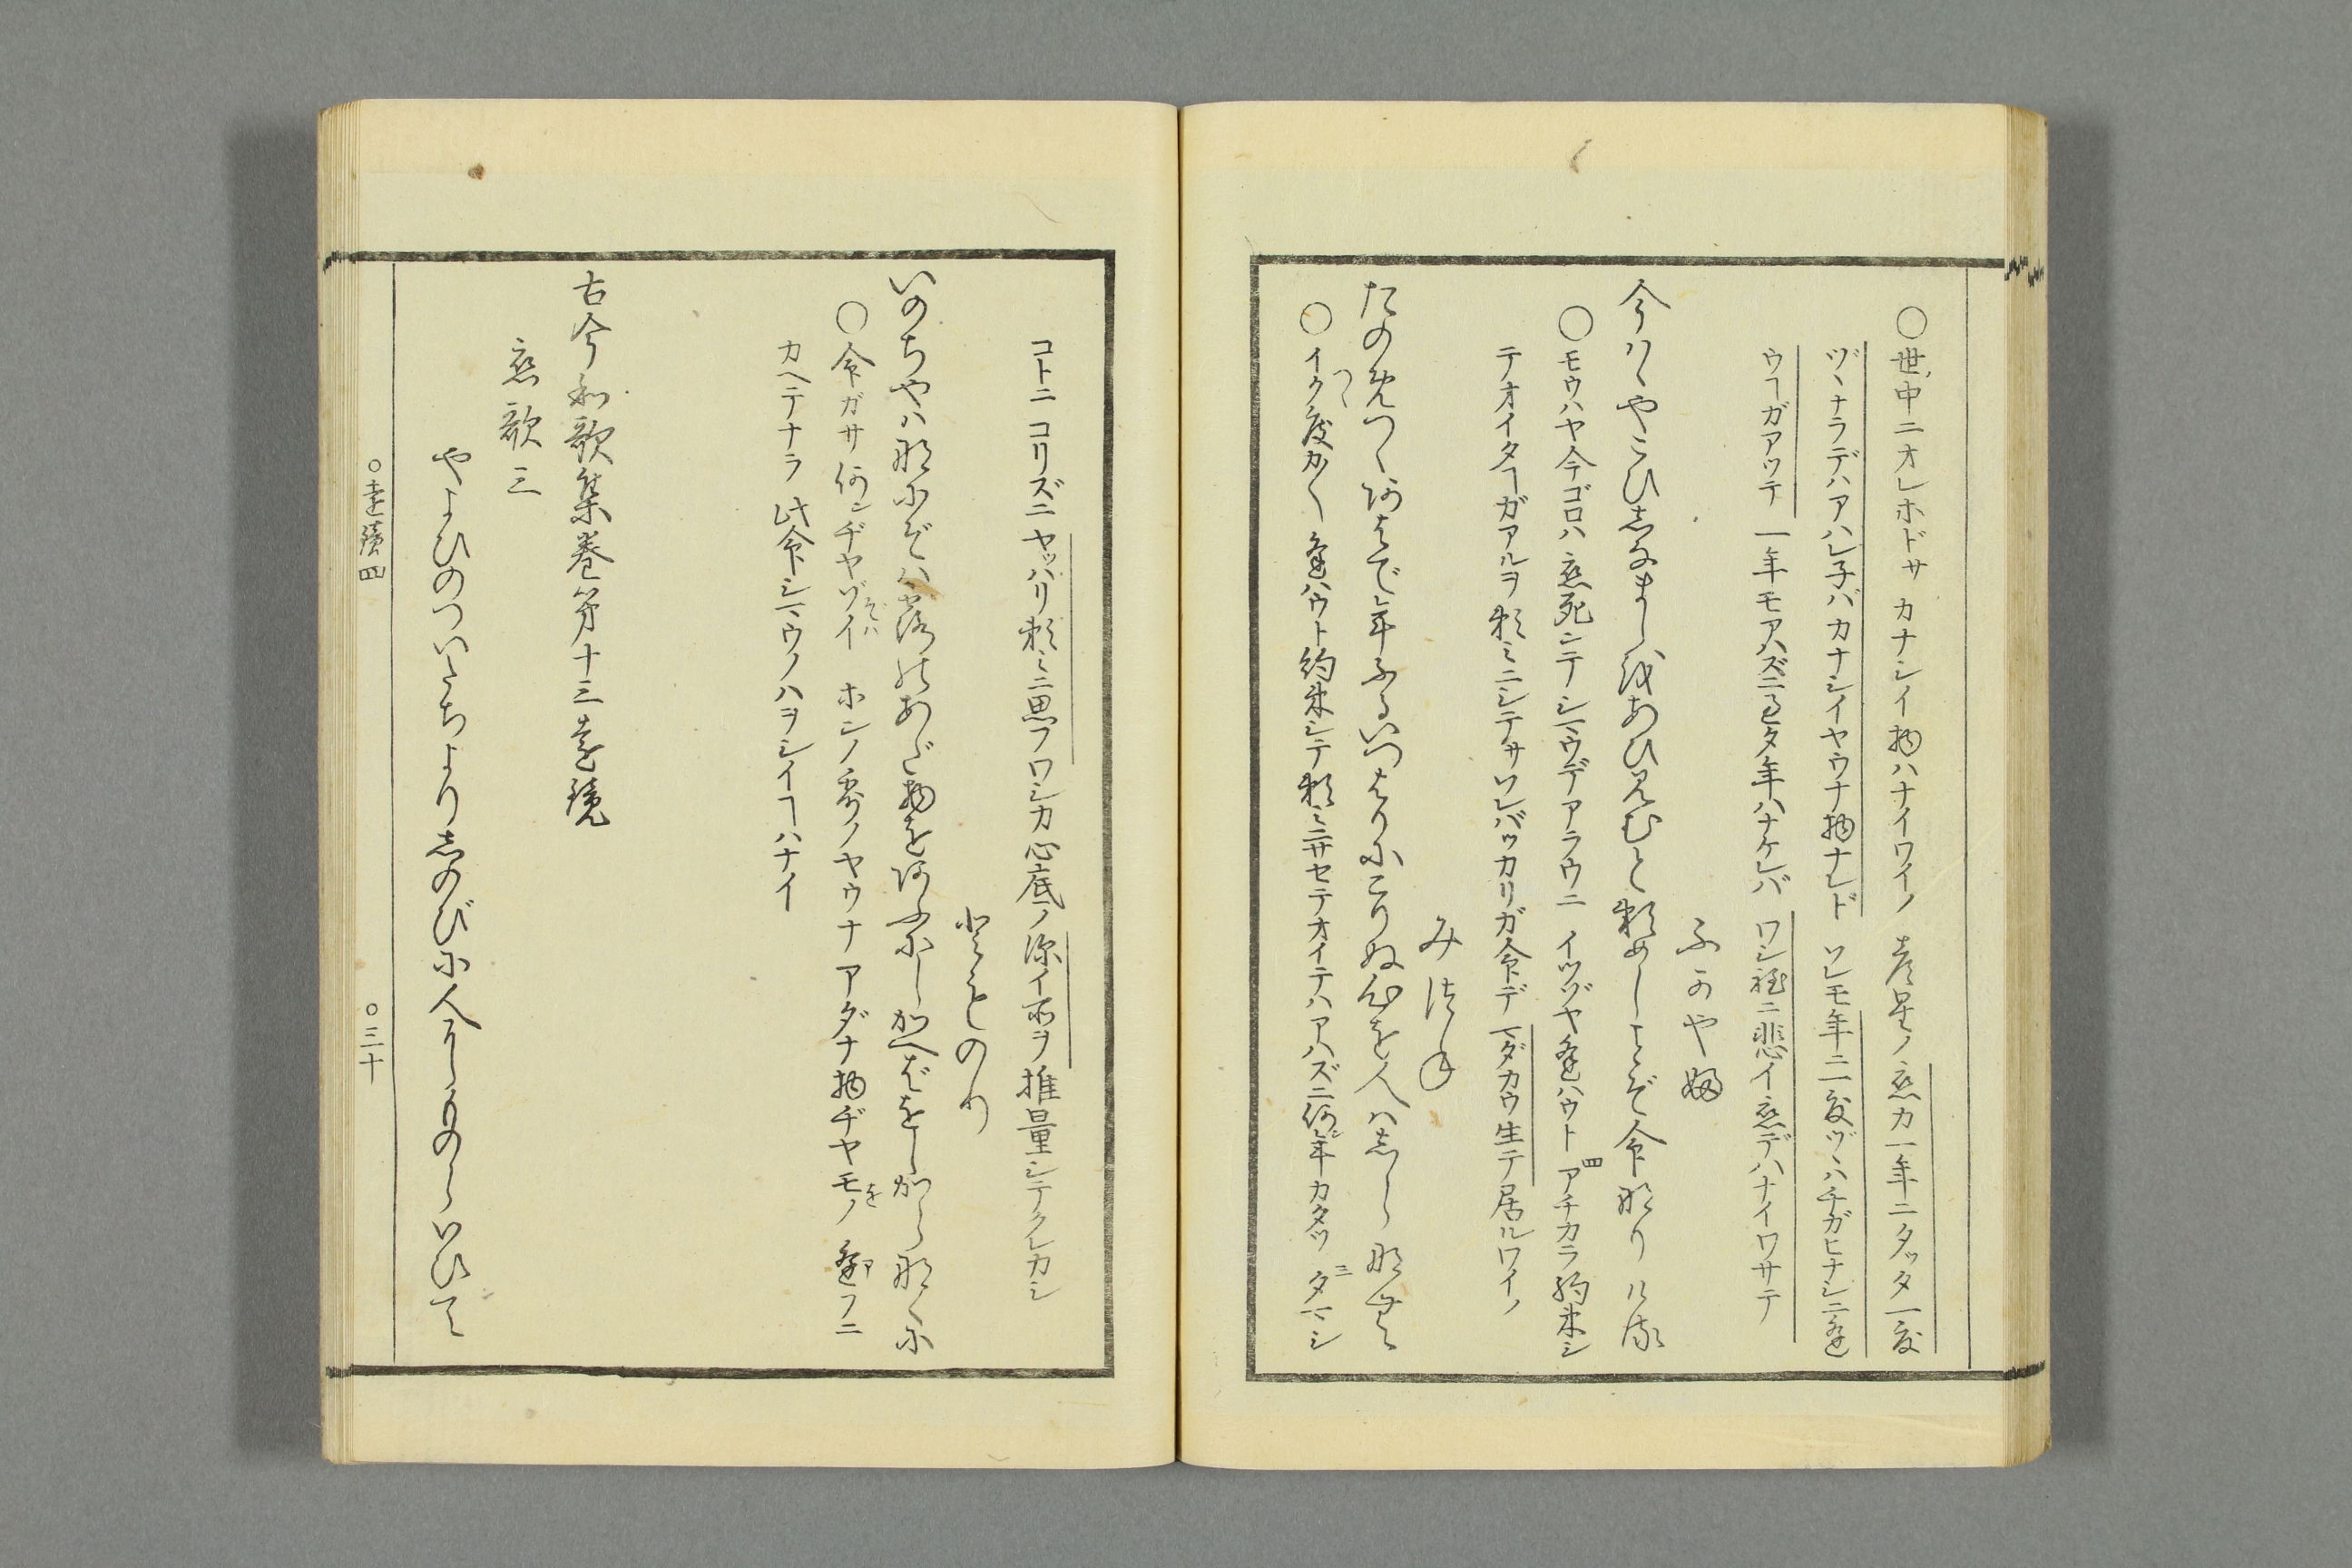 ○世ノ中ニオレホドサ カナシイ物ハナイワイノ 彦星ノ恋カ一年ニタッタ一度
ヅヽナラデハアハレ子バカナシイヤウナ物ナレド ソレモ年ニ一度ヅヽハチガヒナシニ逢
ウヿガアッテ 一年モアハズニ過タ年ハナケレバ ワシ程ニ悲イ恋デハナイワサテ
ふかやぶ
今ははやこひしなましをあひ見むと頼めしことぞ命なりける
○モウハヤ今ゴロハ恋死シテシマウデアラウニ イツゾヤ逢ハウト四アチカラ約束シ
テオイタヿガアルヲ頼ミニシテサ ソレバッカリガ命デ マダカウ生テ居ルワイノ
みつね
たのめつゝあはで年ふるいつはりにこりぬ心を人はしらなむ
○イク度カ〱つゝ逢ハウト約束シテ頼ミニサセテオイテハアハズニ何ン年カタッタ三マシ
コトニ コリズニ ヤッハリ頼ミニ思フワシカ心底ノ深イ所ヲ推量シテクレカシ
とものり
いのちやはなにぞは露のあだ物をあふにしかへばをしからなくに
○命ガサ何ンヂヤゾイぞハ ホンノ露ノヤウナアダナ物ヂヤモノを 逢アフニ
カヘテナラ 此命シマウノハヲシイヿハナイ
古今和歌集巻第十三遠鏡
恋歌三
やよひのついたちよりしのびに人にものらいひて
○遠鏡四 ○三十